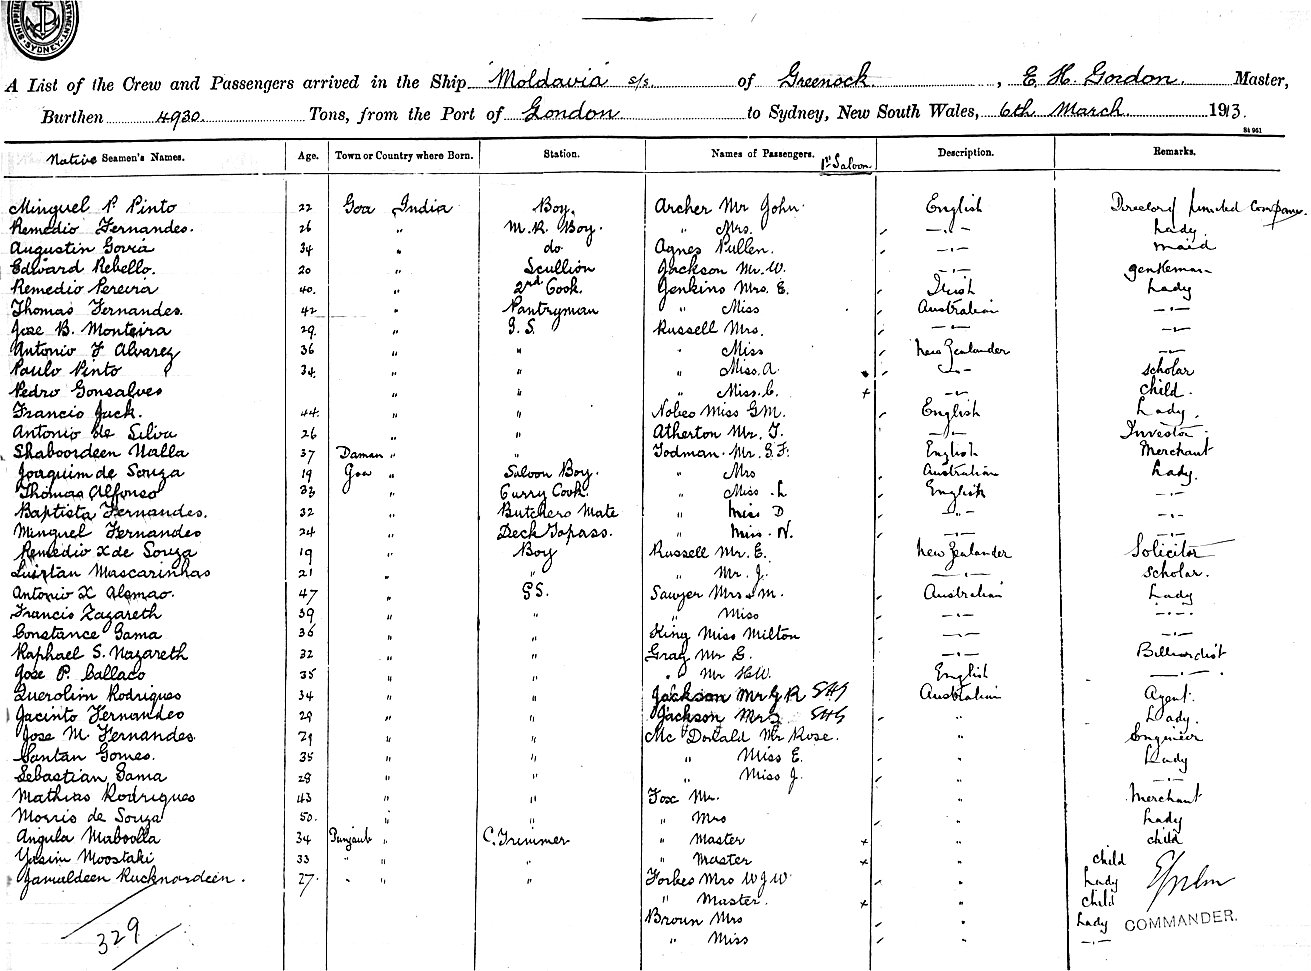 SYDNEY
A List of the Crew and Passengers arrived in the Ship Moldavia s/s. of Greenock, E. H. Gordon. Master,
Burthen 4930. Tons, from the Port of London to Sydney, New South Wales, 6th March. 1913.
Native Seamen's Names. Age. Town or Country where Born. Station. Names of Passengers. 1st Saloon Description. Remarks.
Minguel P. Pinto 22 Goa India Boy. Archer Mr John English Director / Limited Company.
Remedio Fernandes. 26 " " M.R. Boy. " Mrs. -"- Lady.
Augustin Govia 34 " do Agnes Pullen. -"- maid
Edward Rebello. 20 " Scullion Jackson Mr. W. -"- gentleman
Remedio Pereira 40. " 2nd Cook. Jenkins Mrs. E. Irish Lady
Thomas Fernandes. 42 " Pantryman " Miss Australian -"-
Jose B. Monteira 29. " G. S. Russell Mrs. -"- -"-
Antonio F Alvarez 36 " " " Miss New Zealander -"-
Paulo Pinto 34. " " " Miss. A. -"- scholar
Pedro Gonsalves " " " Miss. C. + -"- child.
Francis Jack. 44. " " Nobes Miss G.M. English Lady.
Antonio de Silva 26 " " Atherton Mr. T. -"- Investor.
Shaboordeen Nalla 37 Daman " " Todman. Mr. G.F. English Merchant
Joaquim de Souza 19 Goa " Saloon Boy. " Mrs Australian Lady.
Thomas Alfonso 33 " Curry Cook. " Miss. L English -"-
Baptista Fernandes. 32 " Butchers Mate " Miss D -"- -"-
Minguel Fernandes 24 " Deck Topass. " Miss. N. -"- -"-
Remedio X de Souza 19 " Boy Russell Mr. E. New Zealander Solicitor
Mascarinhas 21 " " " Mr. J. -"- scholar.
Antonio X Alemao. 47 " G.S. Sawyer Mrs. M. Australian Lady
Francis Nazareth 39 " " " Miss -"- -"-
Constance Gama 36 " " King Miss Milton -"- -"-
Raphael S. Nazareth 32 " " Gray Mr G. -"- Billiardist
Jose P. Collaco 35 " " " Mr H.W. English -"-
Querolim Rodrigues 34 " " Jackson Mr G R Australian Agent.
Jacinto Fernandes 29 " " Jackson Mrs " Lady.
Jose M. Fernandes 29 " " Mc Donald Mr Rose. " Engineer
Santan Gomes. 35 " " " Miss E. " Lady
Sebastian Gama 28 " " " Miss J. " -"-
Mathias Rodrigues 43 " " Fox Mr. " Merchant
Morris de Souza 50. " " " Mrs " Lady
Angula Maboolla 34 Punjaub " C. Trimmer " Master + " child
Yasim Moostaki 33 " " " " Master + " child
Jamuldeen Rucknordeen. 27. " " " Forbes Mrs W J W " Lady
" Master. + " child
Broun Mrs " Lady COMMANDER.
329 " Miss " -"-